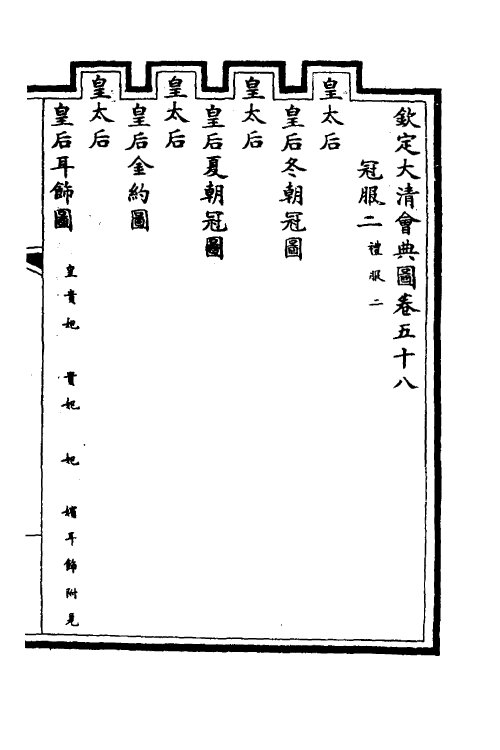 欽定大清會典圖卷五十八
冠服二禮服二
皇太后
皇后冬朝冠圖
皇太后
皇后夏朝冠圖
皇太后
皇后金約圖
皇太后
皇后耳飾圖 皇貴妃 貴妃 妃 嬪耳飾附見